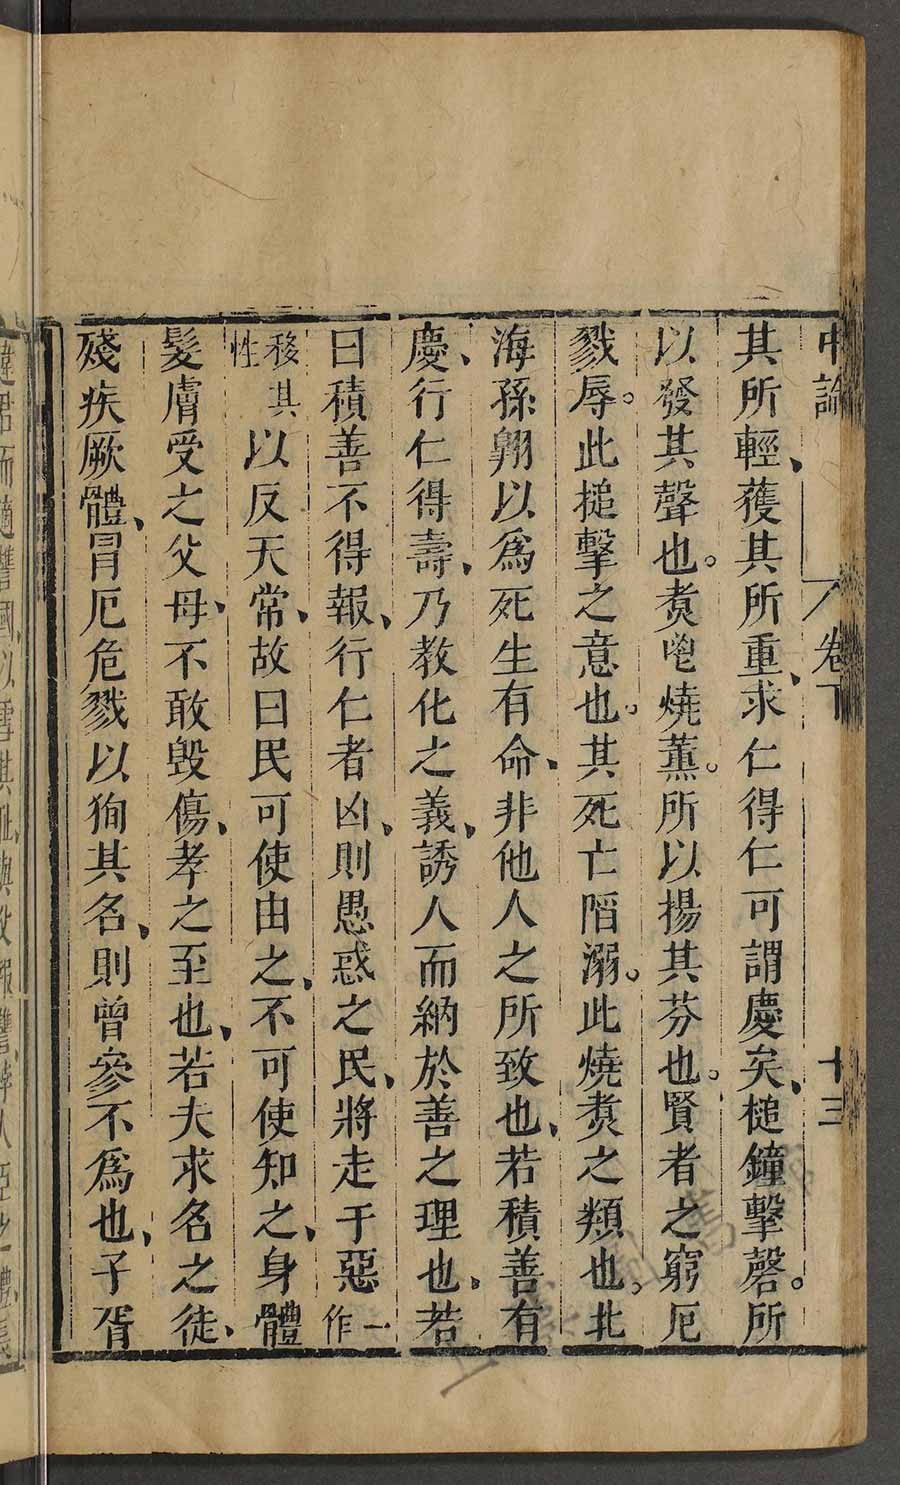 中論 卷下 十三
其所輕、獲其所重、求仁得仁可謂慶矣、槌鐘擊磬。所
以發其聲也。煑鬯燒薰。所以揚其芬也。賢者之窮厄
戮辱。此搥擊之意也。其死亡陷溺。此燒煑之類也。北
海孫翺以爲死生有命、非他人之所致也、若積善有
慶、行仁得壽、乃教化之義、誘人而納於善之理也、若
曰積善不得報、行仁者凶、則愚惑之民、將走于惡一作
移其性以反天常、故曰民可使由之、不可使知之、身體
髮膚受之父母、不敢毁傷、孝之至也、若夫求名之徒、
殘疾厥體、冒厄危戮以狥其名、則曾參不爲也、子胥